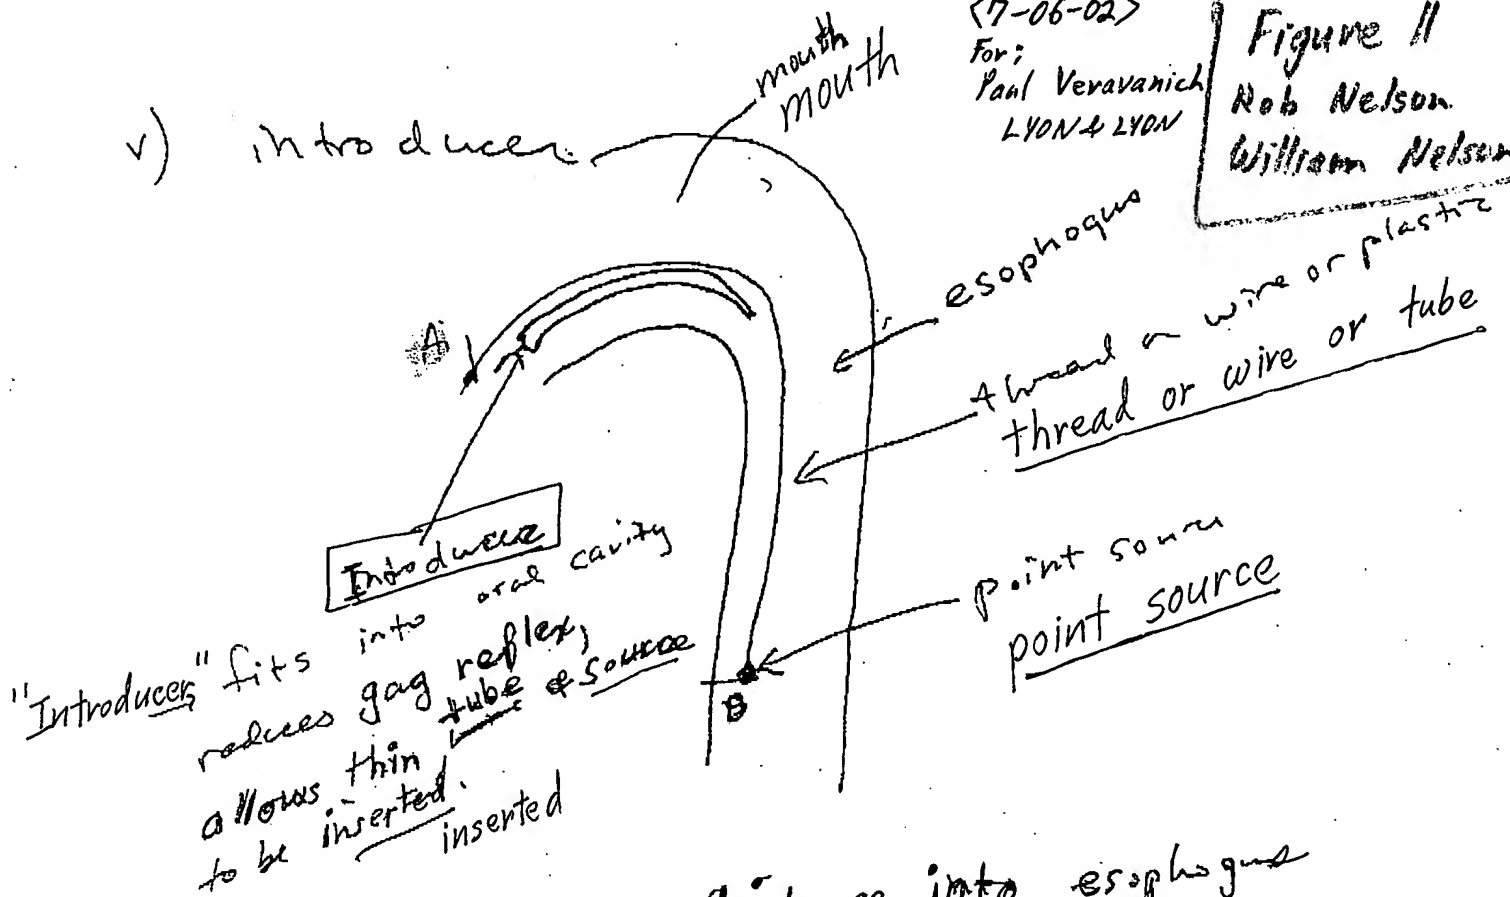 <7-06-02>
For;
Paul Veravanich
LYON & LYON
Figure 11
Rob Nelson
William Nelson
v) introducer
mouth
mouth
esophogus
thread or wire or plastic
thread or wire or tube
A
Introducer
"Introducer" fits into oral cavity
reduces gag reflex,
allows thin tube & source
to be inserted.
inserted
point source
point source
B
into esophogus